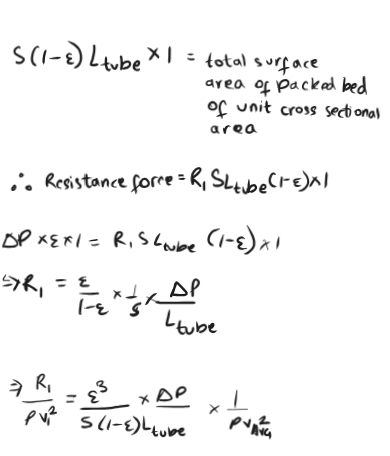 S(1-ε) L_tube × 1 = total surface
area of packed bed
of unit cross sectional
area
∴ Resistance force = R₁ S L_tube (1-ε) × 1
ΔP × ε × 1 = R₁ S L_tube (1-ε) × 1
⇒ R₁ = ε/(1-ε) × 1/S × ΔP/L_tube
⇒ R₁/(ρv₁²) = ε³/(S(1-ε)L_tube) × ΔP × 1/(ρv_Avg²)